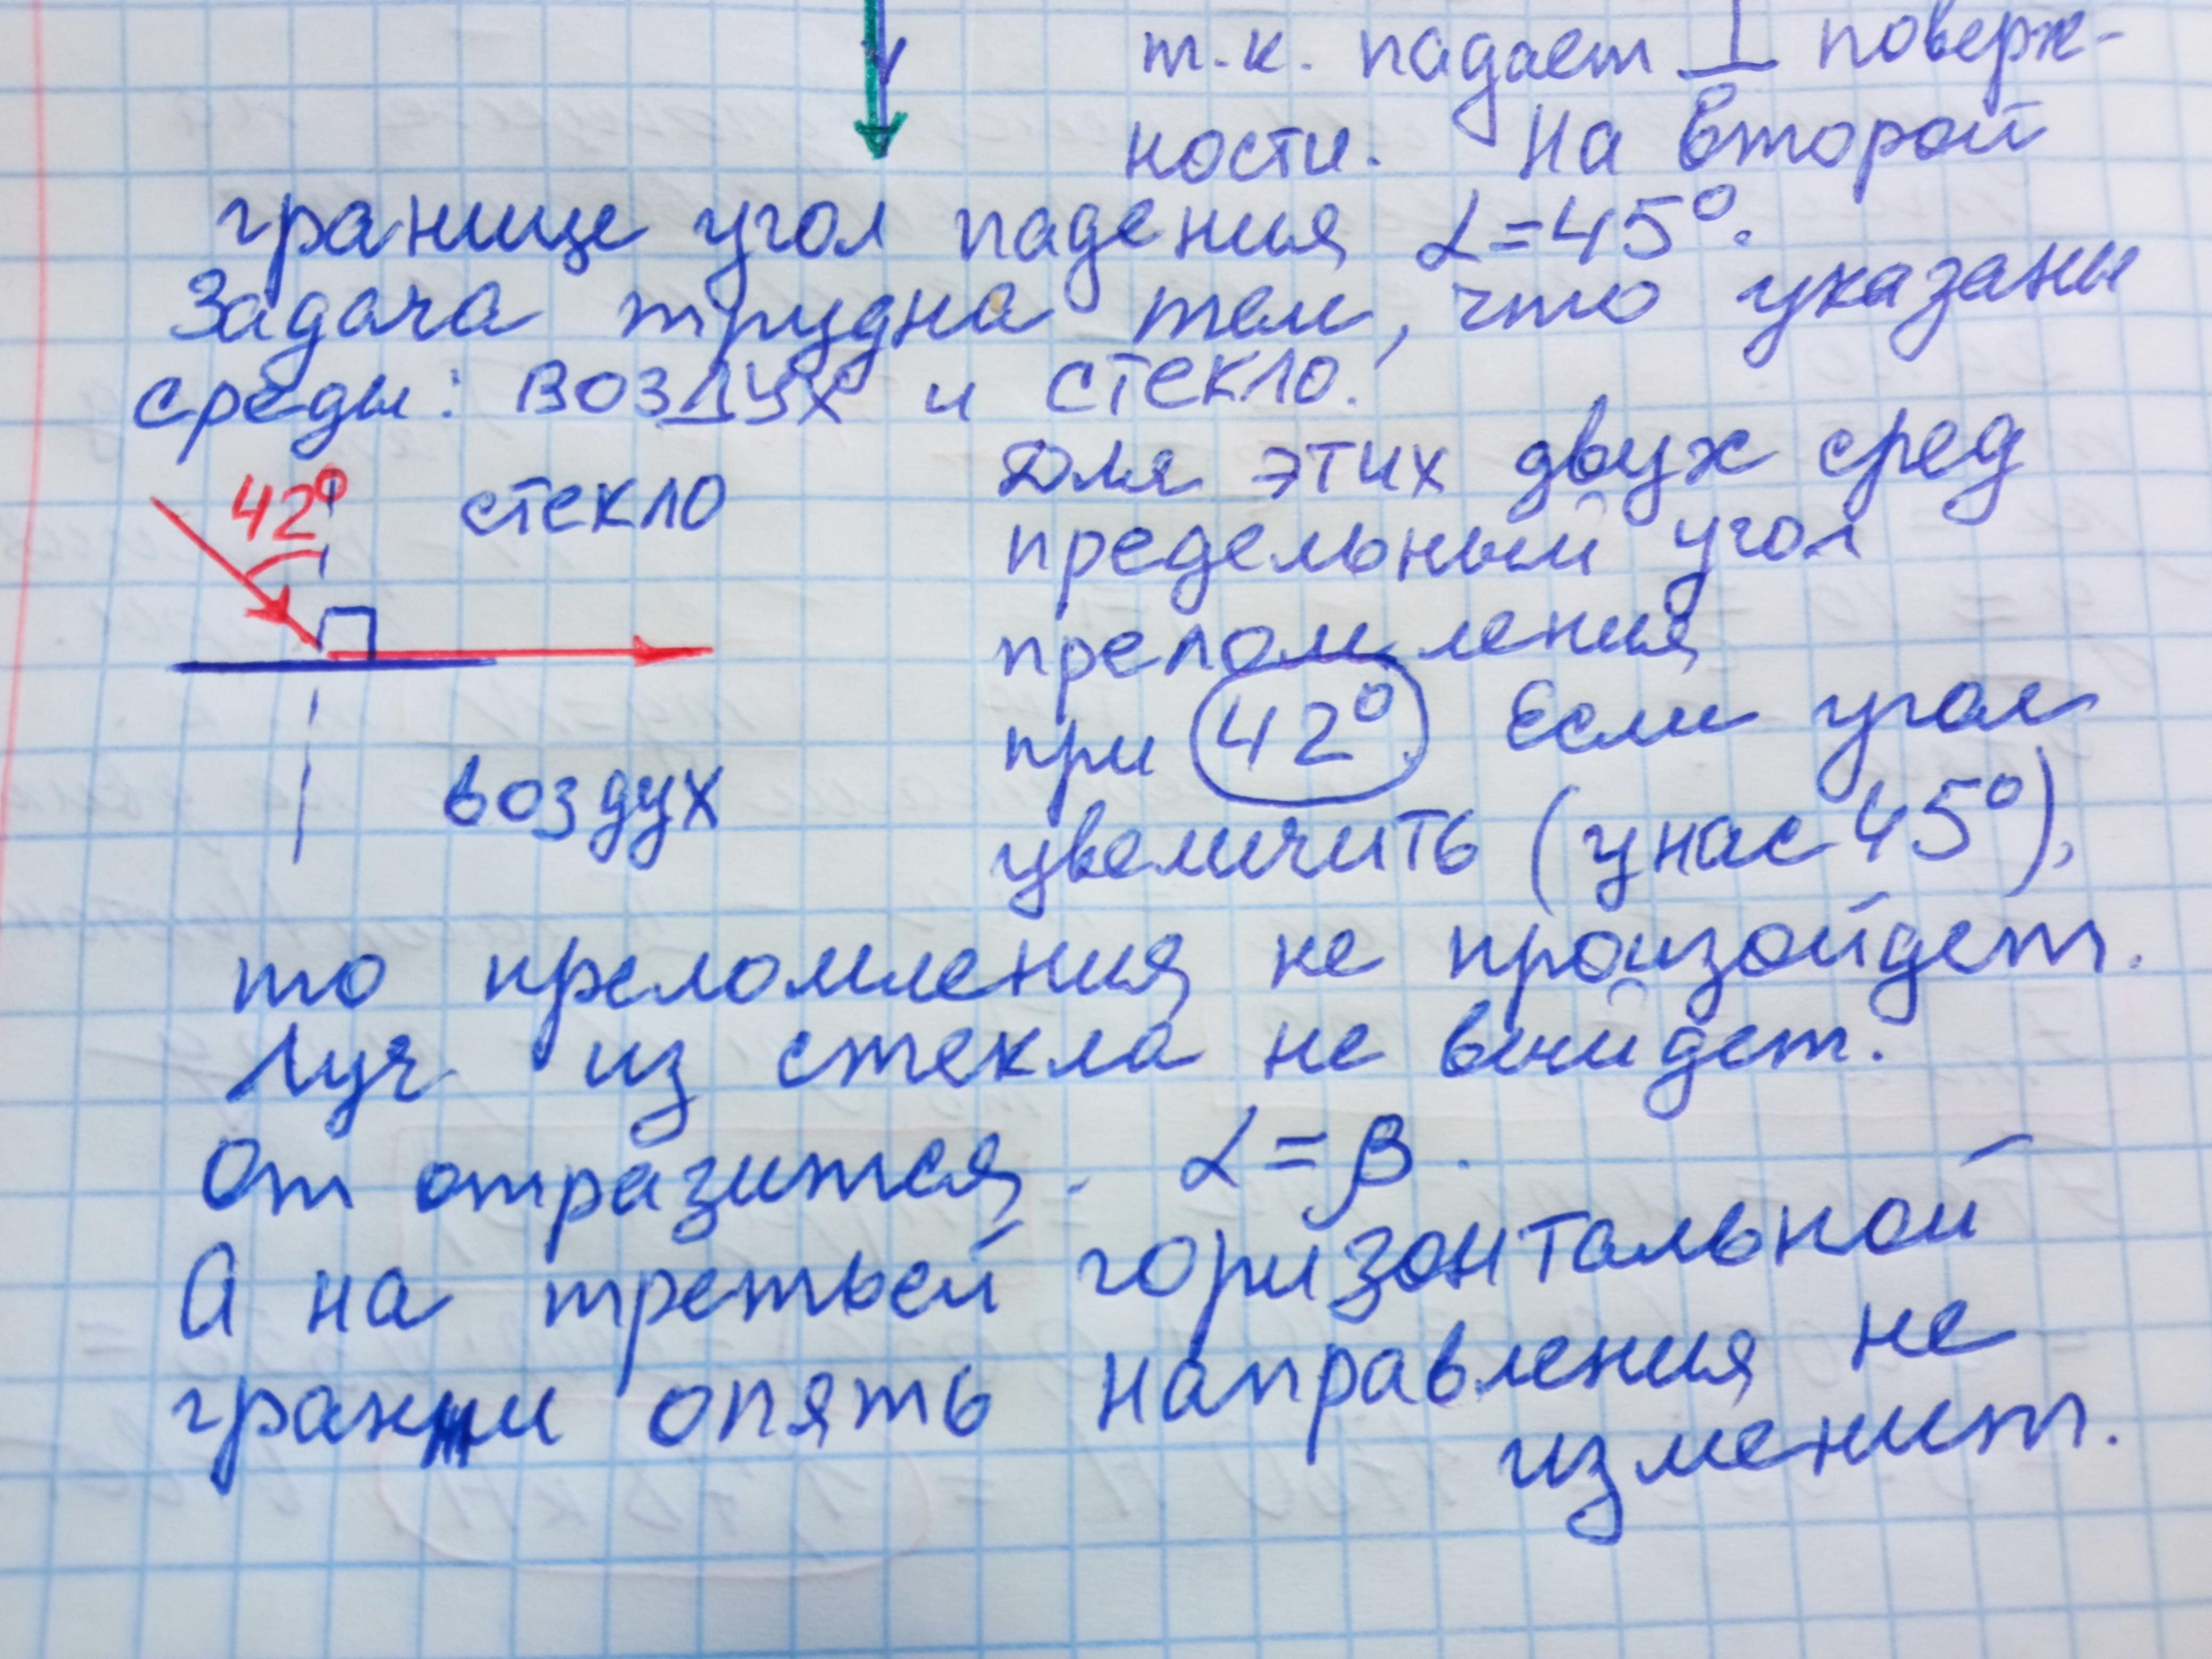 т.к. падает ⊥ поверх-
ности. На второй
границе угол падения α=45°.
Задача трудна тем, что указаны
среды: воздух и стекло.
42° стекло
Для этих двух сред
предельный угол
преломления
при 42°. Если угол
воздух
увеличить (у нас 45°),
то преломления не произойдет.
Луч из стекла не выйдет.
От отразится. α=β.
А на третьей горизонтальной
грани опять направления не
изменит.